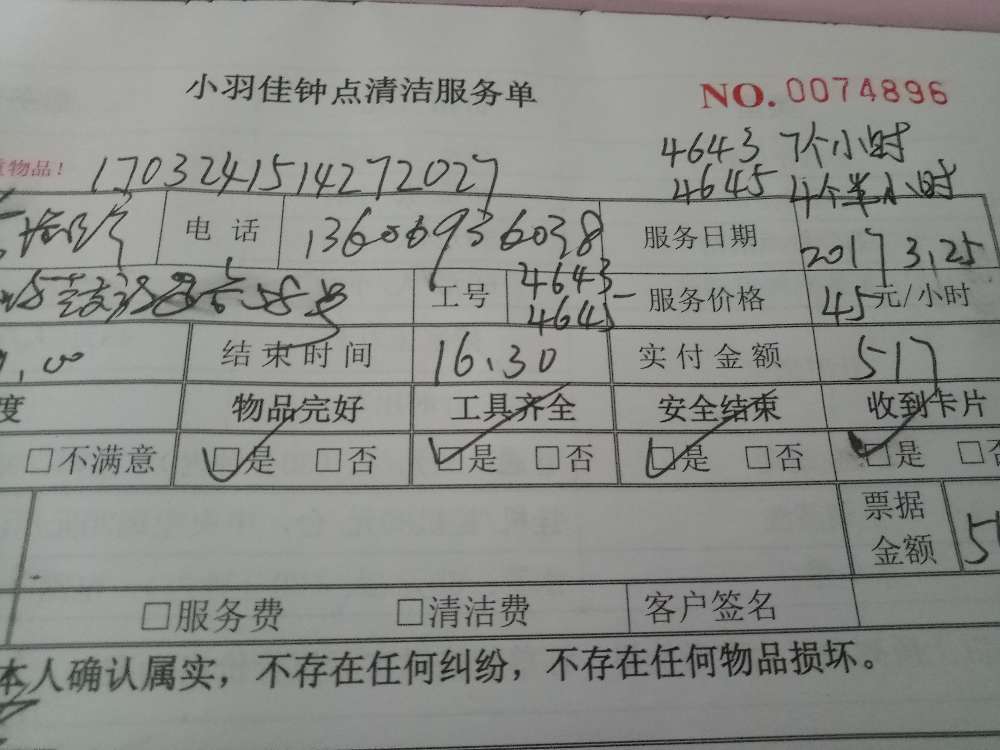 小羽佳钟点清洁服务单 NO.0074896
物品! 1703241514272027 4643 7个小时
4645 4个半小时
电话 13600936038 服务日期 2017 3.25
58号 工号 4643 4645 服务价格 45元/小时
结束时间 16.30 实付金额 517
度 物品完好 工具齐全 安全结束 收到卡片
□不满意 □是 □否 □是 □否 □是 □否 □是 □否
票据金额
□服务费 □清洁费 客户签名
本人确认属实，不存在任何纠纷，不存在任何物品损坏。